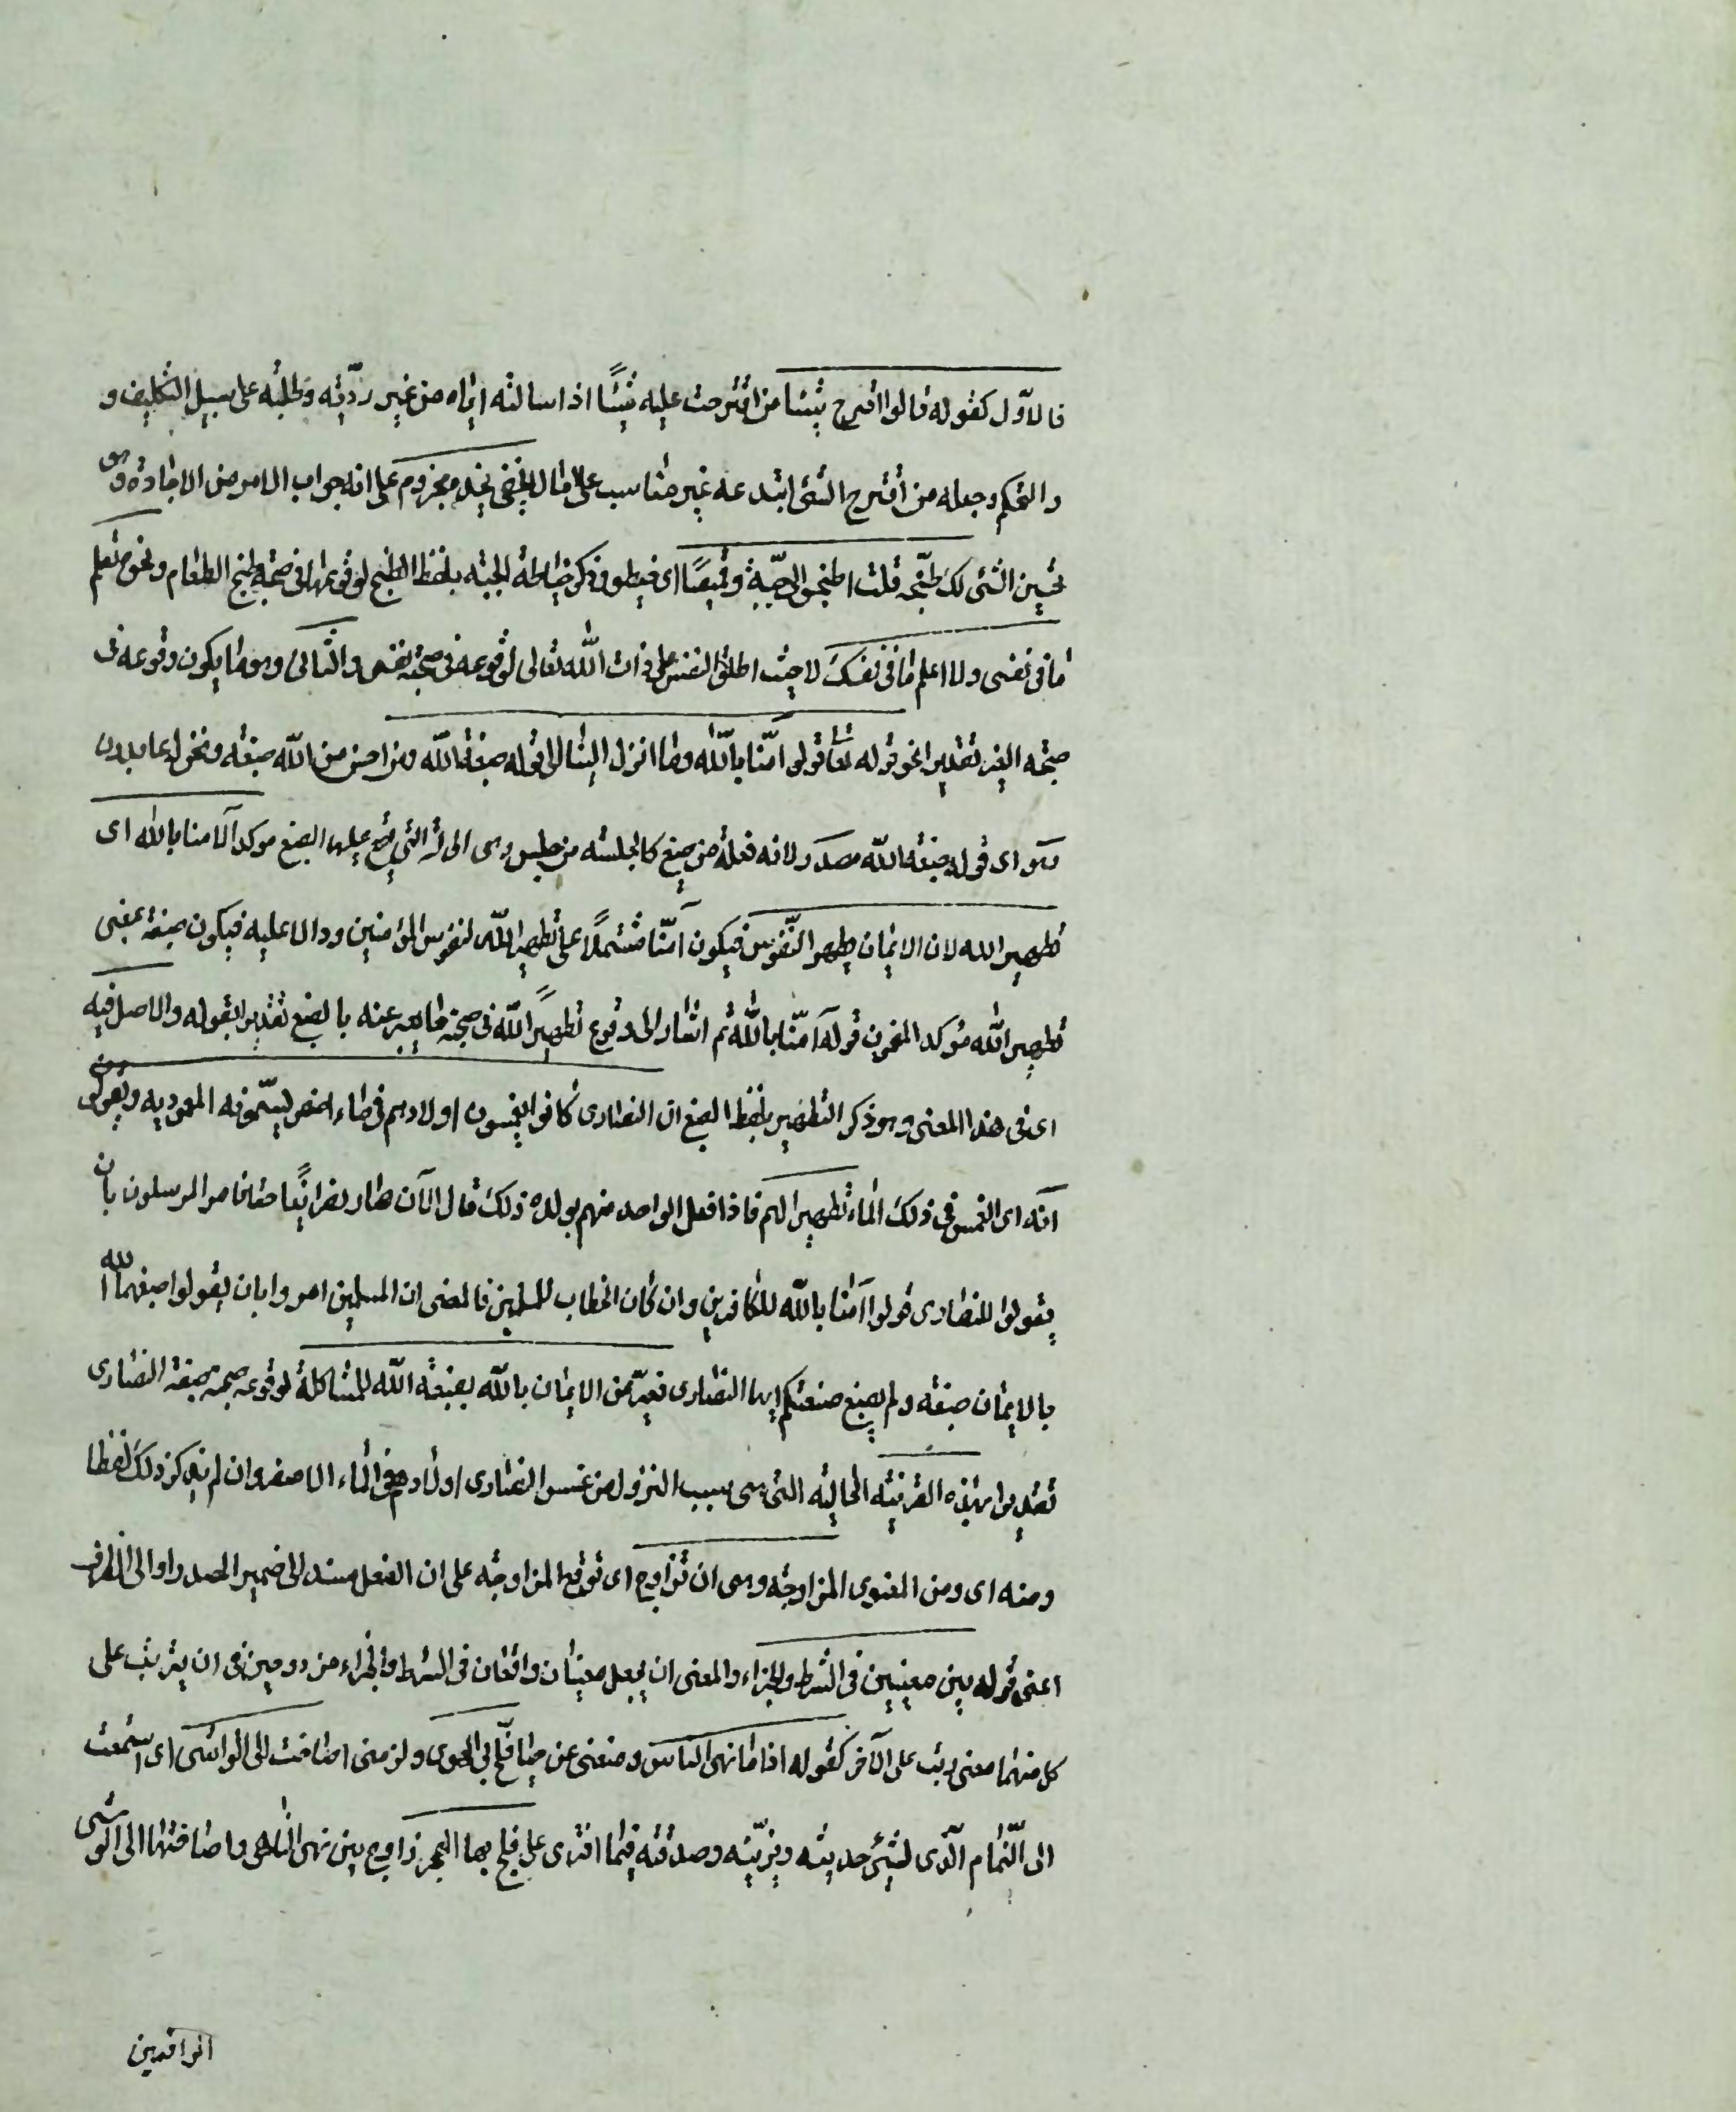 فالاول كقوله قالوا اقترح شيئا من اقترحت عليه شيئًا اذا سالته ايّاه من غير رويّته وطلبته على سبيل التكليف و
والتحكم وجعله من اقترح الشئ ابتدعه غير مناسب على ما لا يخفى نجد مجزوم على انه جواب الامر من الاجادة وهى
تحسين الشئ لك طبخه قلت اطبخوا لى جبّة وقميصًا اى خيطوا ذكر خياطة الجبة بلفظ الطبخ لوقوعها فى صحبة طبخ الطعام ونحوه تعلم
ما فى نفسى ولا اعلم ما فى نفسك لا حيث اطلق النفس على ذات الله تعالى لوقوعه فى صحبة نفسى والثانى وهو ما يكون وقوعه فى
صحبة الغير تقديرا نحو قوله تعا قولوا آمنّا بالله وما انزل الينا الى قوله صبغة الله ومن احسن من الله صبغه ونحن له عابدون
وهو اى قوله صبغة الله مصدر ولانه فعلة من صبغ كالجلسة من جلس وهى الحالة التى يقع عليها الصبغ موكد لآمنا بالله اى
تطهير الله لان الايمان يطهر النّفوس فيكون آمنّا مشتملًا على تطهير الله لنفوس المؤمنين ودالا عليه فيكون صبغة بمعنى
تطهير الله مؤكد المضمون قوله آمنّا بالله ثم اشار الى وقوع تطهير الله فى صحبة ما يعبر عنه بالصبغ تقديرا بقوله والاصل فيه
اى فى هذا المعنى وهو ذكر التطهير بلفظ الصبغ ان النصارى كانوا يغمسون اولادهم فى ماء اصفر يسمّونه المعموديه ويقولون
انّه اى الغمس فى ذلك الماء تطهير لهم فاذا فعل الواحد منهم بولده ذلك قال الآن صار نصرانيًا حقا فامر المرسلون بان
يقولوا للنصارى قولوا آمنا بالله للكافرين وان كان الخطاب للمسلمين فالمعنى ان المسلمين امروا بان يقولوا صبغنا الله
بالايمان صبغه ولم يصبغ صبغتكم ايها النصارى فعبّر عن الايمان بالله بصبغة الله للمشاكلة لوقوعه صحبة صبغة النصارى
تقديرا بهذه القرينه الحاليه التى هى سبب النزول من غمس النصارى اولادهم فى الماء الاصفر وان لم يذكر ذلك لفظا
ومنه اى ومن المعنوى المزاوجه وهى ان تزاوج اى توقع المزاوجه على ان الفعل مسند الى ضمير المصدر او الى الظرف
اعنى قوله بين معنيين فى الشرط والجزاء والمعنى ان يجعل معنيان واقعان فى الشرط والجزاء مزدوجين فى ان يترتب على
كل منهما معنى رتب على الآخر كقوله اذا ما نهى الناس ومنعنى عن حبها فلجّ بى الهوى ولزمنى اصاخت الى الواشى اى استمعت
الى النّمام الّذى يشى حديثه ويزيّنه وصدقته فيما افترى على فلج بها الهجر زاوج بين نهى الناهى واصاختها الى الواشى
الواقعين